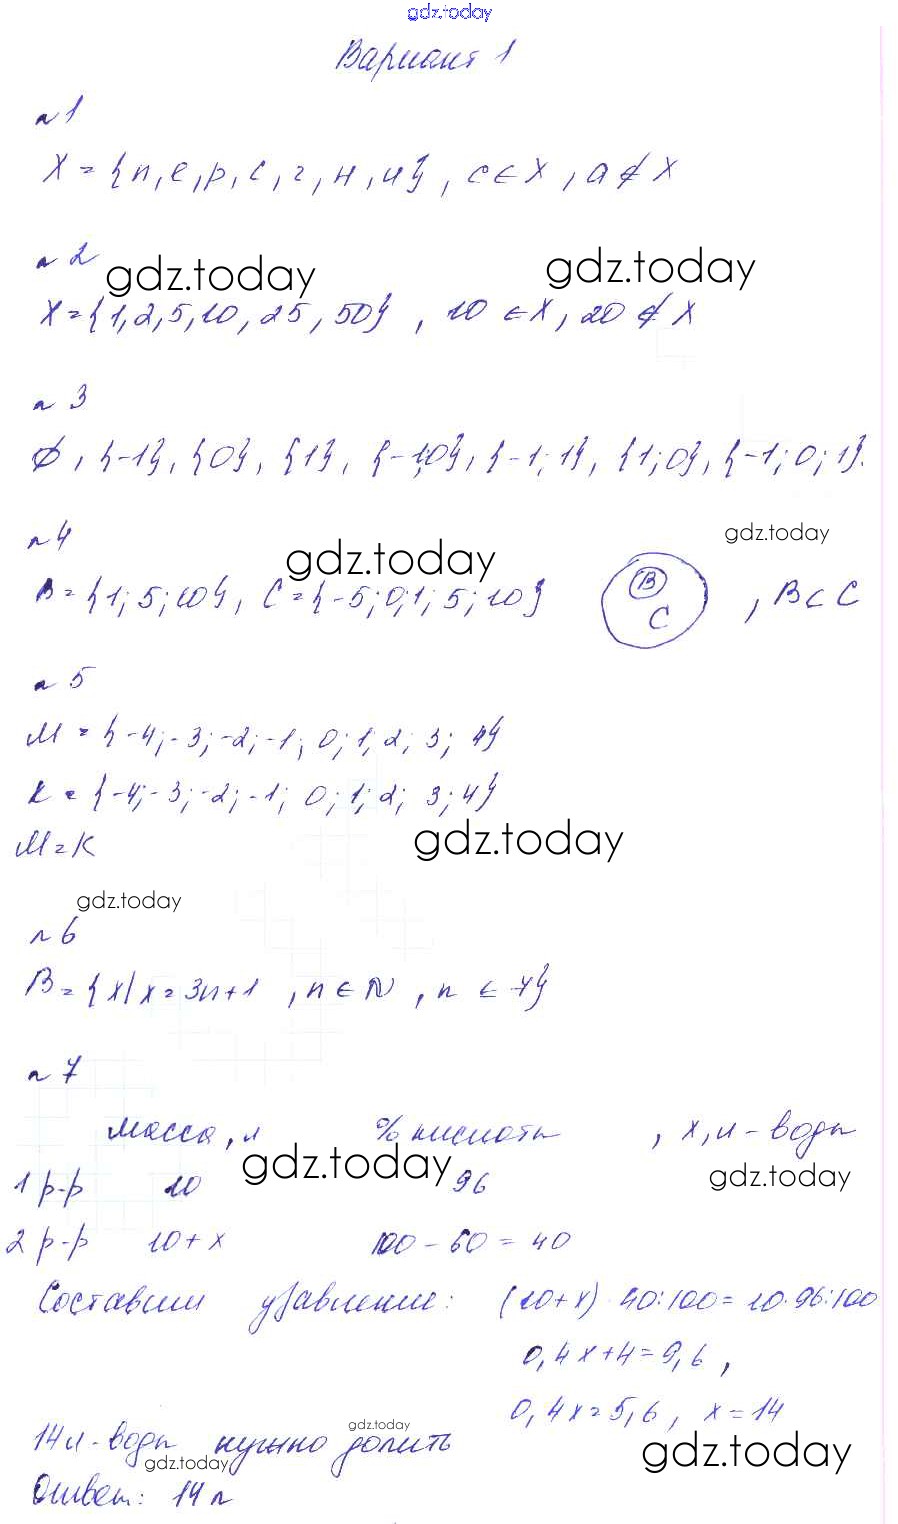 gdz.today
Вариант 1
№1
X = {п, е, р, с, г, н, и}, с ∈ X, а ∉ X
№2
gdz.today gdz.today
X = {1, 2, 5, 10, 25, 50}, 10 ∈ X, 20 ∉ X
№3
∅, {-1}, {0}, {1}, {-1;0}, {-1; 1}, {1; 0}, {-1; 0; 1}.
№4
gdz.today gdz.today
B = {1; 5; 10}, C = {-5; 0; 1; 5; 10} B C , B ⊂ C
№5
M = {-4; -3; -2; -1; 0; 1; 2; 3; 4}
K = {-4; -3; -2; -1; 0; 1; 2; 3; 4}
M = K
gdz.today
gdz.today
№6
B = {x | x = 3n+1, n ∈ N, n ≤ 7}
№7
Масса, л % кислоты , x, л - воды
gdz.today gdz.today
1 р-р 10 96
2 р-р 10 + x 100 - 60 = 40
Составим уравнение: (10 + x) · 40:100 = 10·96:100
0,4x + 4 = 9,6,
0,4x = 5,6, x = 14
gdz.today
14 л - воды нужно долить
gdz.today gdz.today
Ответ: 14 л